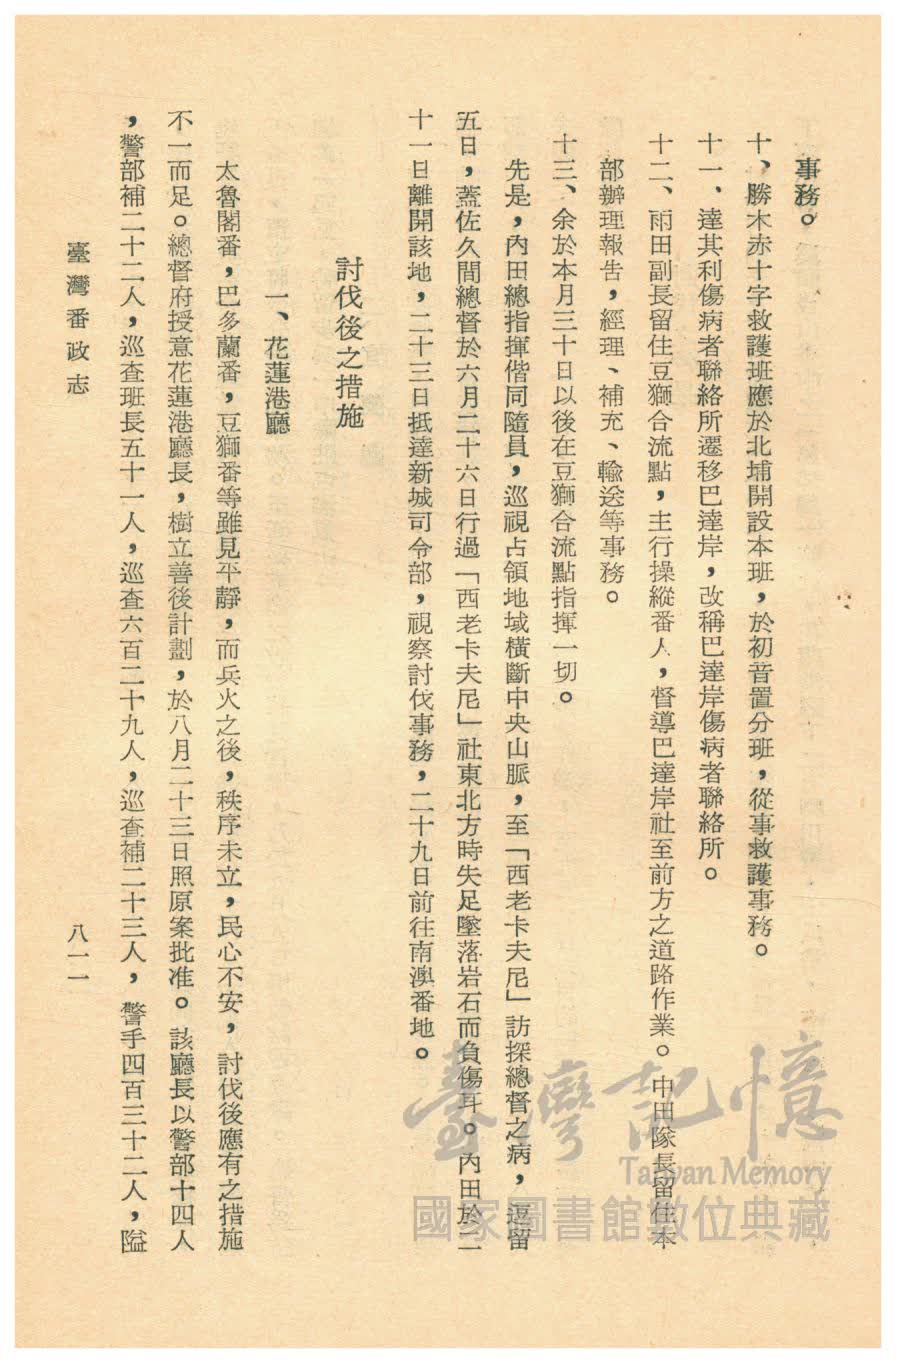 事務。
十、勝木赤十字救護班應於北埔開設本班，於初音置分班，從事救護事務。
十一、達其利傷病者聯絡所遷移巴達岸，改稱巴達岸傷病者聯絡所。
十二、雨田副長留住豆獅合流點，主行操縱番人，督導巴達岸社至前方之道路作業。中田隊長留住本
部辦理報告，經理、補充、輸送等事務。
十三、余於本月三十日以後在豆獅合流點指揮一切。
先是，內田總指揮偕同隨員，巡視占領地域橫斷中央山脈，至「西老卡夫尼」訪探總督之病，逗留
五日，蓋佐久間總督於六月二十六日行過「西老卡夫尼」社東北方時失足墜落岩石而負傷耳。內田於二
十一日離開該地，二十三日抵達新城司令部，視察討伐事務，二十九日前往南澳番地。
討伐後之措施
一、花蓮港廳
太魯閣番，巴多蘭番，豆獅番等雖見平靜，而兵火之後，秩序未立，民心不安，討伐後應有之措施
不一而足。總督府授意花蓮港廳長，樹立善後計劃，於八月二十三日照原案批准。該廳長以警部十四人
，警部補二十二人，巡查班長五十一人，巡查六百二十九人，巡查補二十三人，警手四百三十二人，隘
臺灣番政志
八一一
臺灣記憶
Taiwan Memory
國家圖書館數位典藏